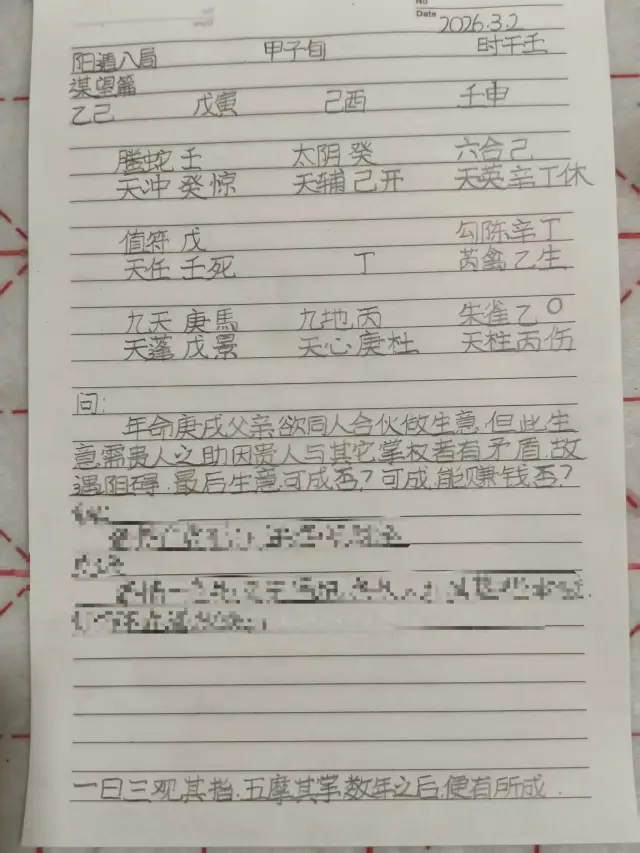 No
Date 2026.3.2
阳遁八局 甲子旬 时干壬
谋望篇
乙己 戊寅 己酉 壬申
腾蛇壬 太阴癸 六合己
天冲癸惊 天辅己开 天英辛丁休
值符戊 勾陈辛丁
天任壬死 丁 芮禽乙生
九天庚馬 九地丙 朱雀乙〇
天蓬戊景 天心庚杜 天柱丙伤
问:
年命庚戌父亲,欲同人合伙做生意,但此生
意需贵人之助因贵人与其它掌权者有矛盾.故
遇阻碍.最后生意可成否?可成,能赚钱否?
一曰三观其指.五摩其掌.数年之后.便有所成.